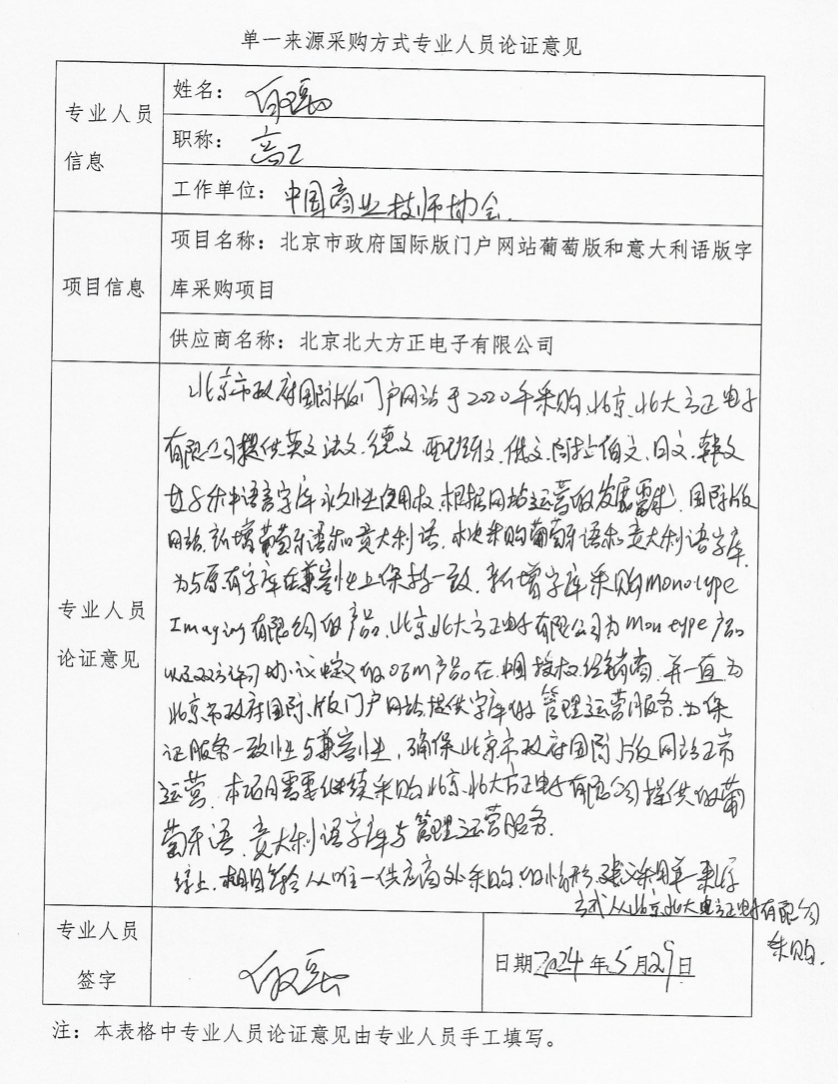 单一来源采购方式专业人员论证意见
专业人员
信息
姓名：
职称：高工
工作单位：中国商业技师协会.
项目信息
项目名称：北京市政府国际版门户网站葡萄版和意大利语版字
库采购项目
供应商名称：北京北大方正电子有限公司
专业人员
论证意见
北京市政府国际版门户网站于2020年采购北京北大方正电子
有限公司提供英文、法文、德文、西班牙文、俄文、阿拉伯文、日文、韩文
种语言字库永久性使用权,根据网站运营的发展需求,国际版
网站新增葡萄牙语和意大利语,本次采购葡萄牙语和意大利语字库.
为与原有字库在兼容性上保持一致,新增字库采购monotype
Imaging有限公司的产品,北京北大方正电子有限公司为Monotype产品
以及双方许可协议 的OEM产品在中国授权经销商,并一直为
北京市政府国际版门户网站提供字库的管理运营服务.为保
证服务一致性与兼容性,确保北京市政府国际版网站正常
运营.本项目需要继续采购北京北大方正电子有限公司提供的葡
萄牙语、意大利语字库与管理运营服务.
综上, 从唯一供应商处采购的情形,建议采用单一来源
方式从北京北大方正电子有限公司
采购.
专业人员
签字
日期2024年5月29日
注：本表格中专业人员论证意见由专业人员手工填写。